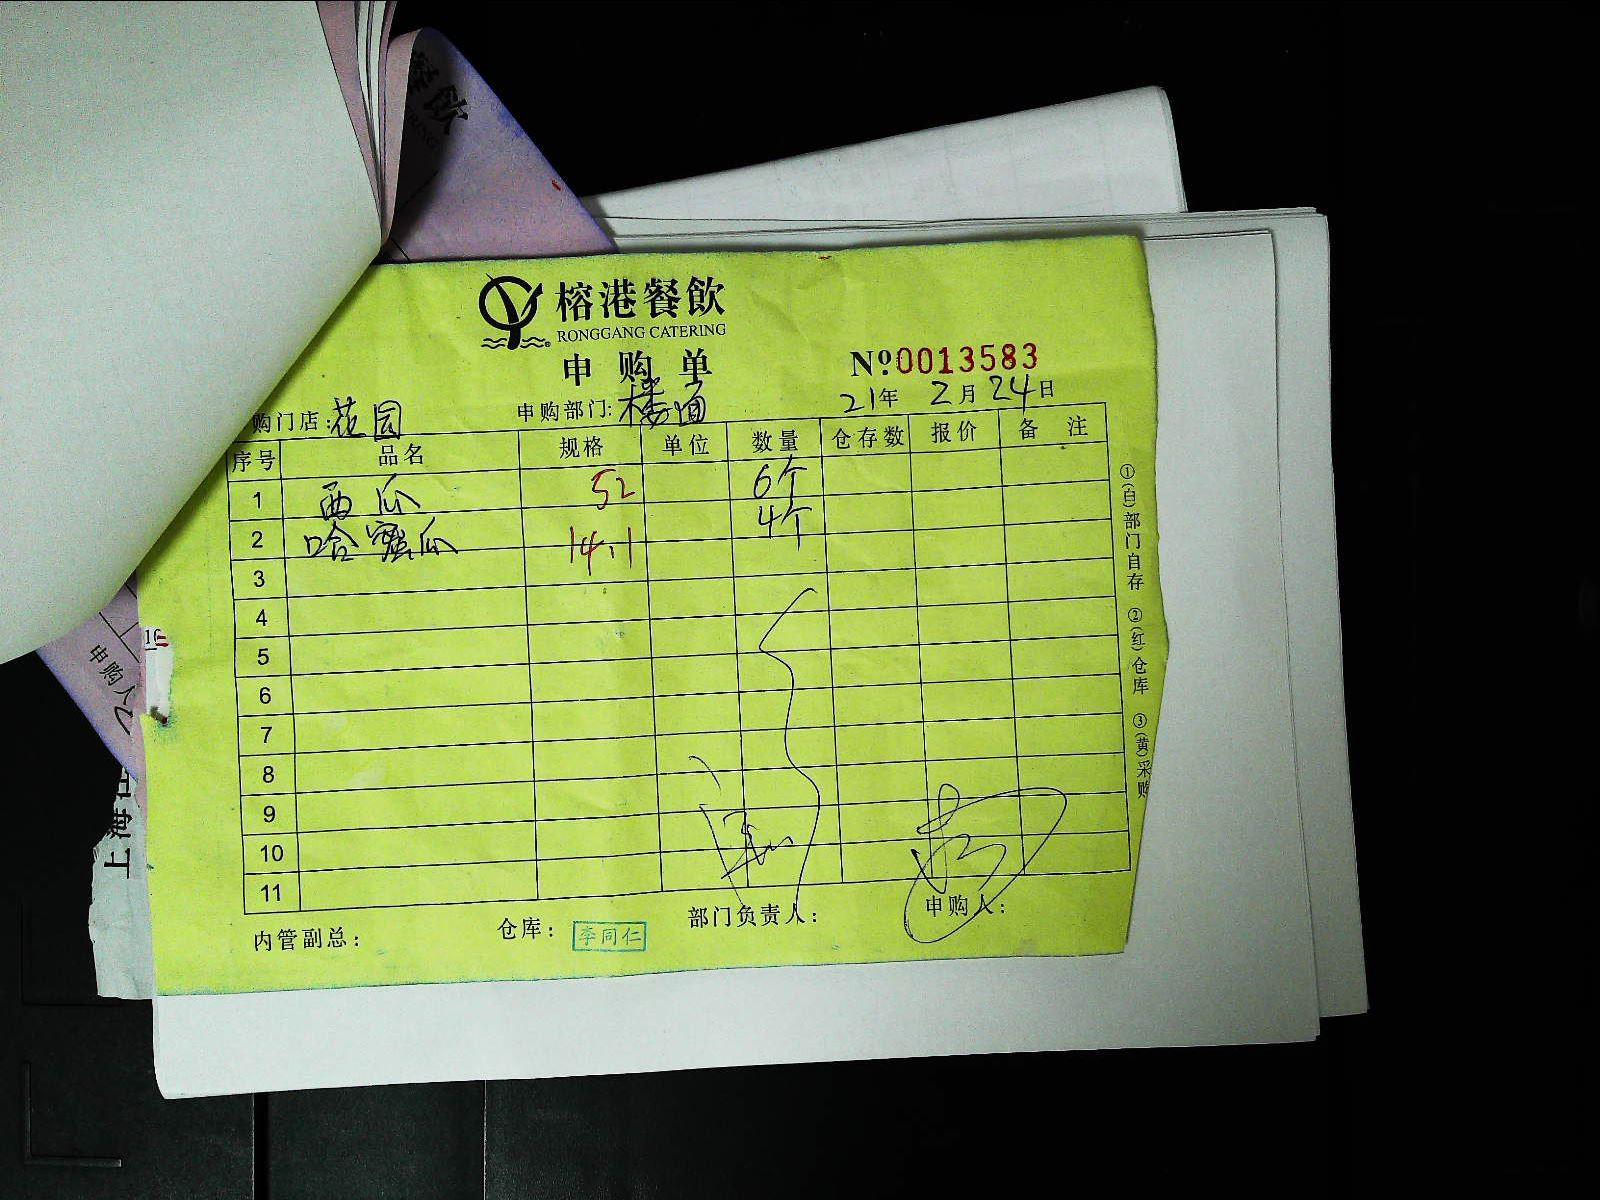 餐飲
榕港餐飲
RONGGANG CATERING
申购单
№0013583
购门店: 花园 申购部门: 楼面 21年 2月 24日
序号 品名 规格 单位 数量 仓存数 报价 备注
1 西瓜 52 6个
2 哈蜜瓜 14.1 4个
3
4
5
6
7
8
9
10
11
内管副总: 仓库: 李同仁 部门负责人: 申购人:
①(白)部门自存 ②(红)仓库 ③(黄)采购
申购人
上海